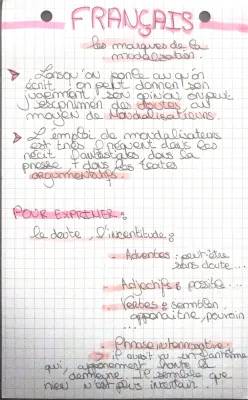 FRANÇAIS
Les marques de la
modalisation.
Lorsqu'on parle ou qu'on
écrit, on peut donner son
jugement, son opinion, on peut
exprimer des doutes, au
moyen de Modalisateurs.
L'emploi de modalisateurs
est très fréquent dans les
récit fantastiques, dans la
presse, dans les textes
argumentatifs.
POUR EXPRIMER :
le doute, l'incertitude :
Adverbes : peut-être
sans doute...
Adjectifs : possible...
Verbes : sembler,
apparaître, pouvoir
...
Phrase interrogative :
il un fantôme
qui, hante la
demeure. Il semblait que
rien n'est plus